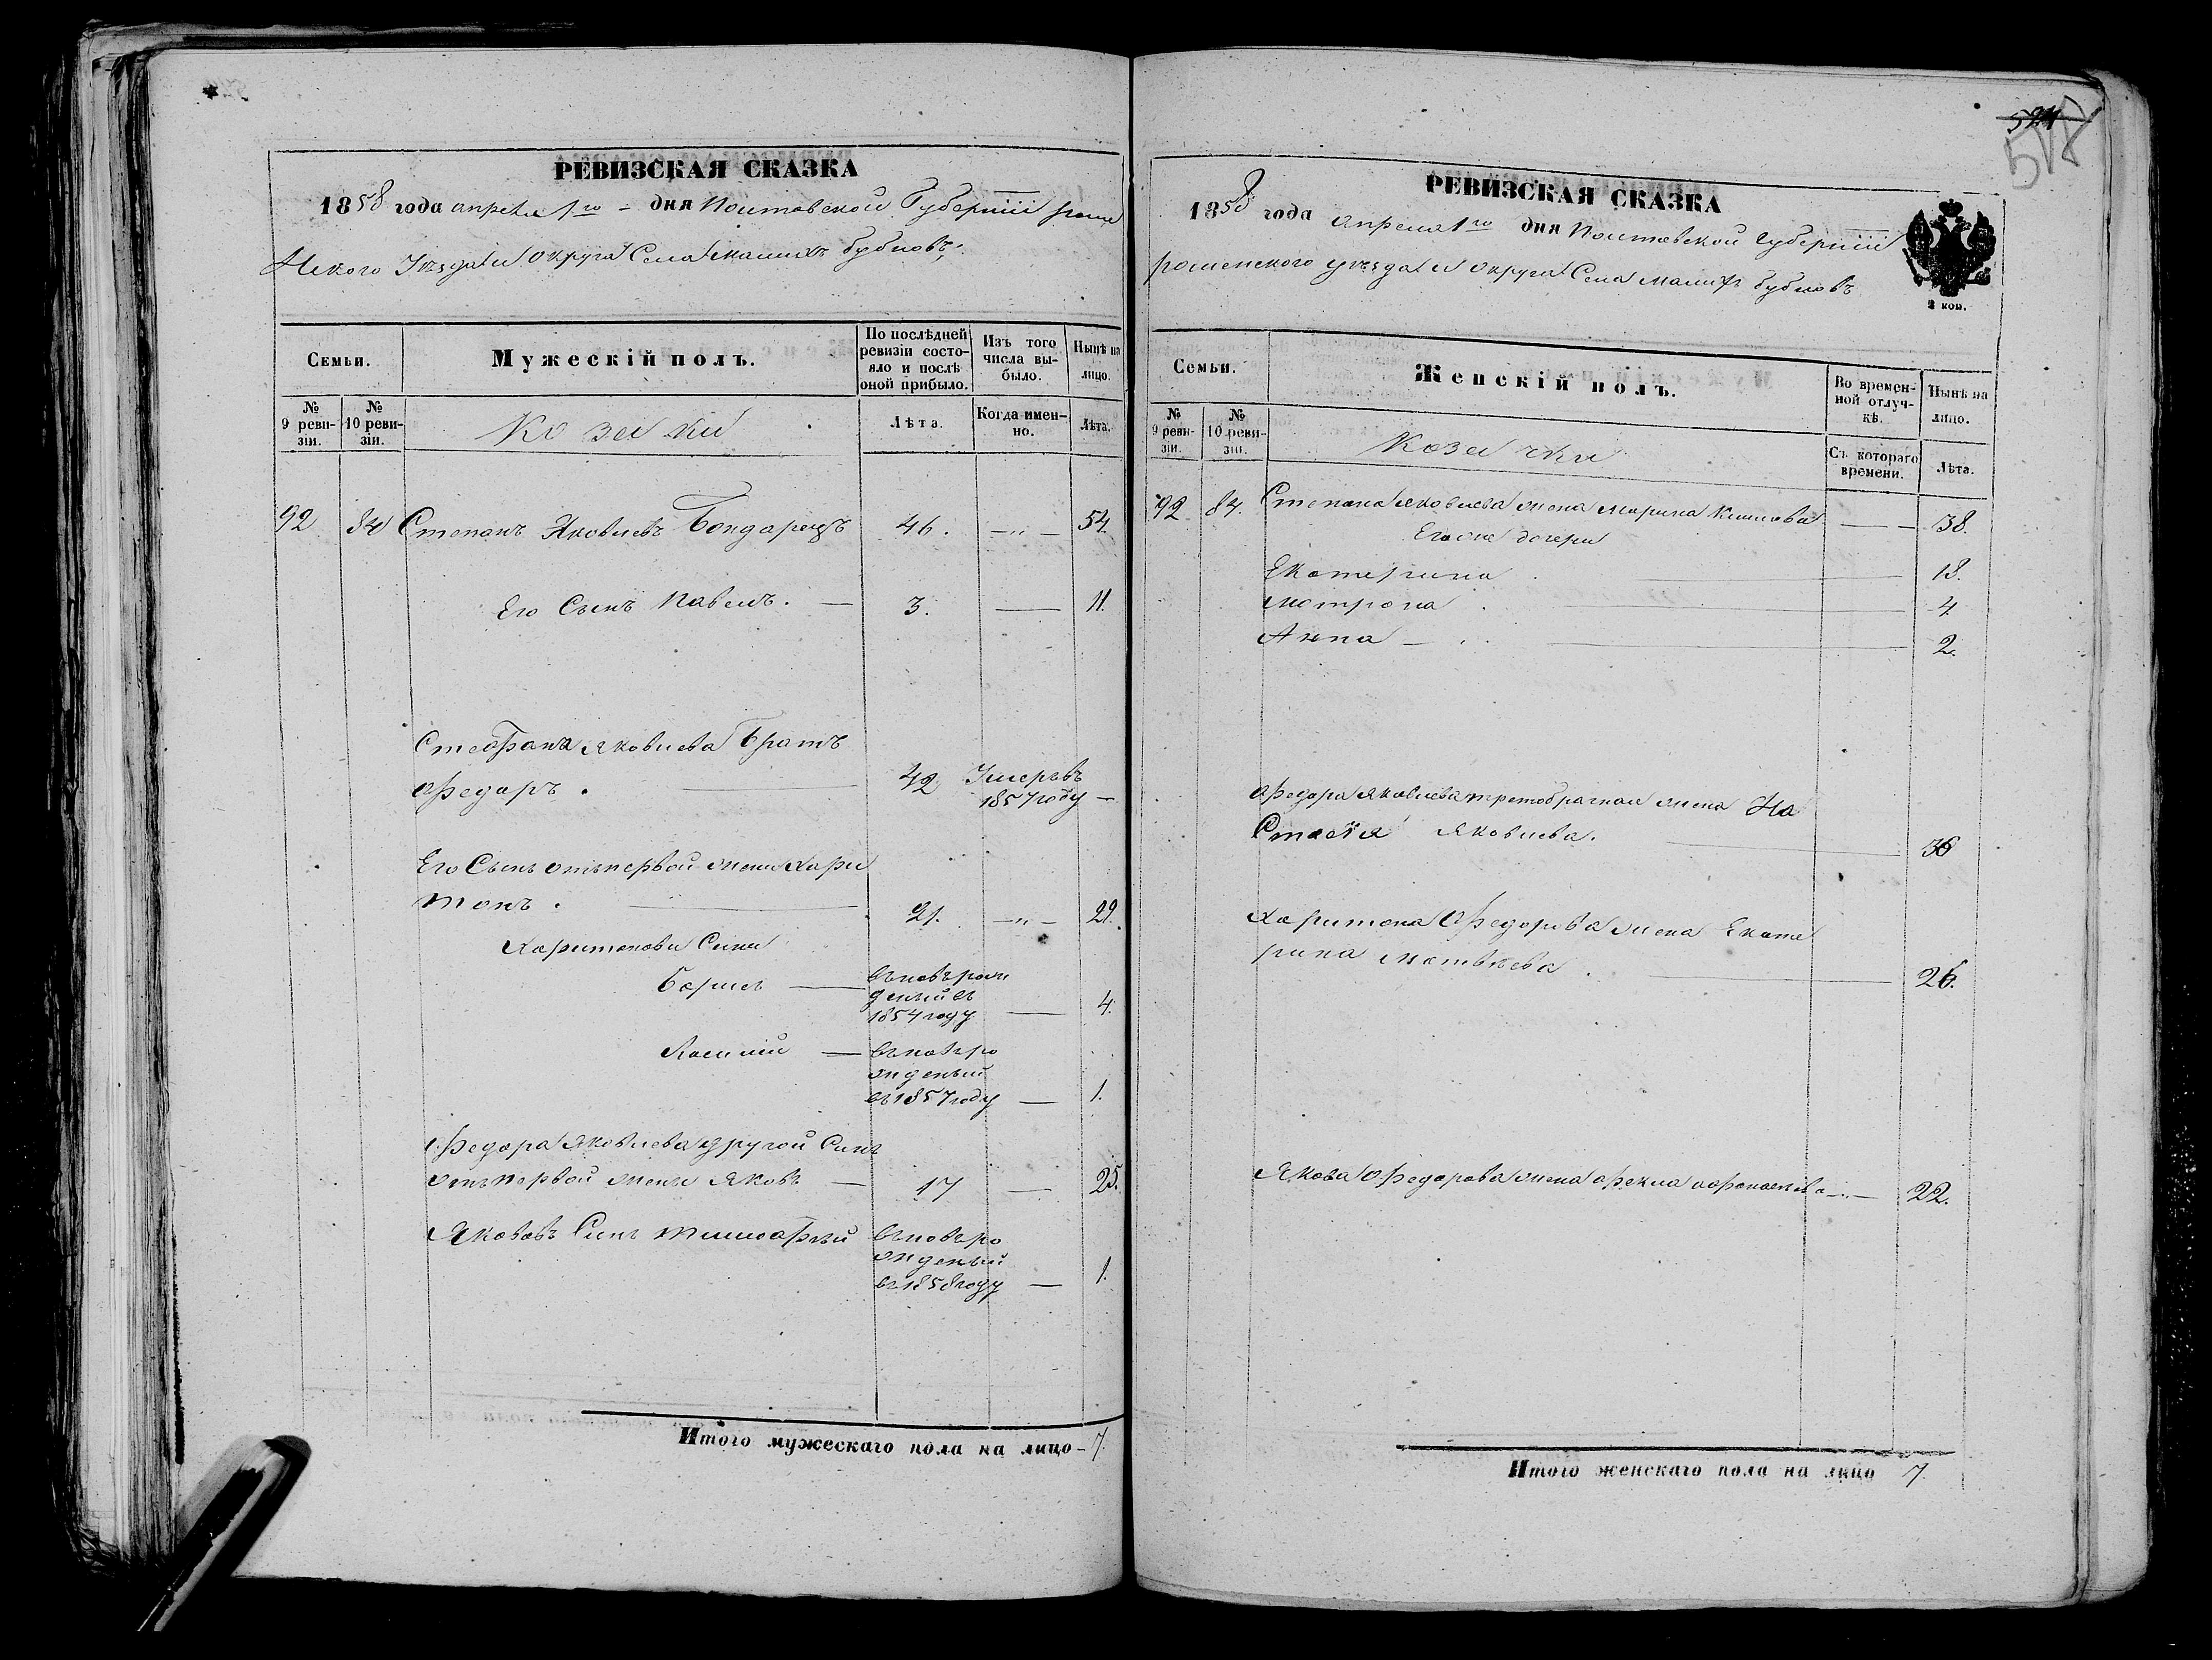 РЕВИЗСКАЯ СКАЗКА
1858 года апреля 1го дня Полтавской Губерніи роме
нского Уезда и округа Села малихъ бубновъ
Семьи.
Мужескій полъ.
По послѣдней ревизіи состояло и послѣ оной прибыло.
Изъ того числа выбыло.
Нынѣ на лицо.
№ 9 ревизіи.
№ 10 ревизіи.
Козаки
Лѣта.
Когда именно.
Лѣта.
92 84 Степанъ Яковлевъ Бондарецъ 46. —"— 54.
Его Сынъ Павелъ. — 3. — 11.
Стефана Яковлева Братъ
Федоръ. — 42 Умеръ въ
1857 году —
Его Сынъ отъ первой жены Хари
тонъ. — 21. —"— 29.
Харитонови Сини
Борисъ — вновь рож
деный въ
1854 году — 4.
— вновь ро
жденый
въ 1857 году — 1.
Федора Яковлева другой Синъ
отъ первой жены Яковъ — 17 — 25.
Яковъ Синъ Тимофѣй вновь ро
жденый
въ 1858 году — 1.
Итого мужескаго пола на лицо - 7.
521
518
РЕВИЗСКАЯ СКАЗКА
1858 года апреля 1го дня Полтавской Губерніи
роменского уезда и округа Села малихъ бубновъ
2 коп.
Семьи.
Женскій полъ.
Во временной отлучкѣ.
Нынѣ на лицо.
№ 9 ревизіи.
№ 10 ревизіи.
Козачки
Съ котораго времени.
Лѣта.
92. 84. Степана Яковлева жена Марина Климова — — 38.
Егоже дочери
Екатерина. — 18.
Мотрона. — 4.
Анна — — 2.
Федора Яковлева третобрачная жена На
Стасія Яковлева. — 36
Харитона Федорова жена Екате
рина Матвѣева. — 26.
Якова Федорова жена Фекла Афонасиева — — 22.
Итого женскаго пола на лицо 7.